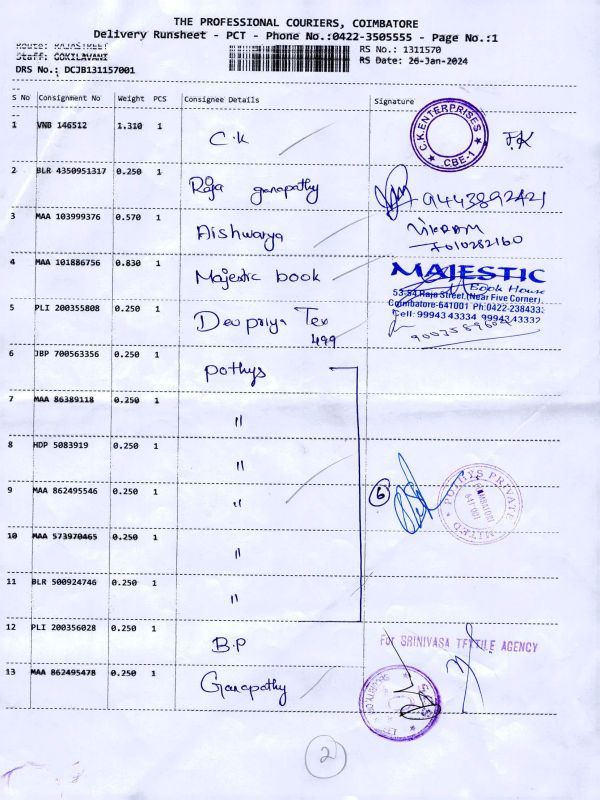 THE PROFESSIONAL COURIERS, COIMBATORE
Delivery Runsheet - PCT - Phone No.:0422-3505555 - Page No.:1
Route: RAJASTREET
Staff: GOKILAVANI
DRS No.: DCJB131157001
RS No.: 1311570
RS Date: 26-Jan-2024
S No Consignment No Weight PCS Consignee Details Signature
1 VNB 146512 1.310 1 C.K C.K.ENTERPRISES CBE-1
2 BLR 4350951317 0.250 1 Raja ganapathy 9443892421
3 MAA 103999376 0.570 1 Aishwarya VIKRAM
7010282160
4 MAA 101886756 0.830 1 Majestic book MAJESTIC
Book House
53-54 Raja Street, (Near Five Corner),
Coimbatore-641001 Ph:0422-2384333
Cell: 99943 43334 99943 43332
5 PLI 200355808 0.250 1 Devpriya Tex
499
6 JBP 700563356 0.250 1 pothys
7 MAA 86389118 0.250 1 "
8 HDP 5083919 0.250 1 "
9 MAA 862495546 0.250 1 " 6 POTHYS PRIVATE LIMITED
10 MAA 573970465 0.250 1 "
11 BLR 500924746 0.250 1 "
12 PLI 200356028 0.250 1 B.P For SRINIVASA TEXTILE AGENCY
13 MAA 862495478 0.250 1 Ganapathy
2